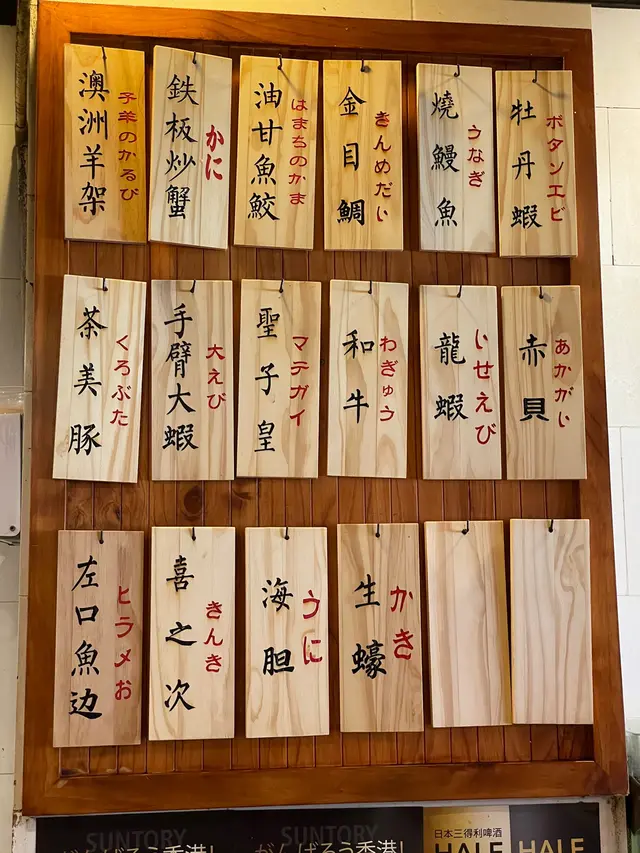 澳洲羊架
子羊のかるび
鉄板炒蟹
かに
油甘魚鮫
はまちのかま
金目鯛
きんめだい
燒鰻魚
うなぎ
牡丹蝦
ボタンエビ
茶美豚
くろぶた
手臂大蝦
大えび
聖子皇
マテガイ
和牛
わぎゅう
龍蝦
いせえび
赤貝
あかがい
左口魚边
ヒラメお
喜之次
きんき
海胆
うに
生蠔
かき
SUNTORY
がんばろう香港!
SUNTORY
がんばろう香港!
日本三得利啤酒
HALE
HALE